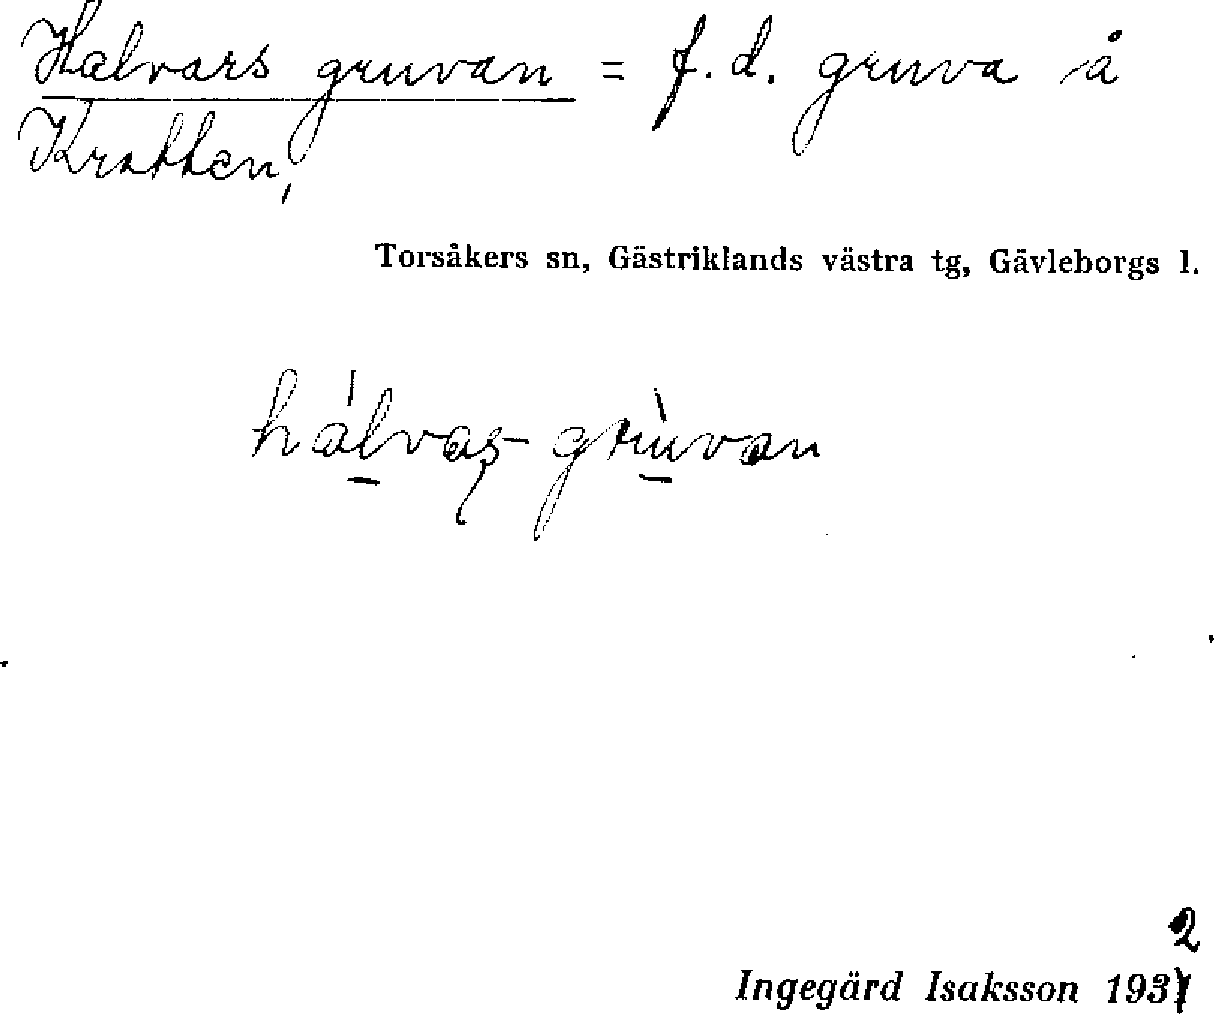 Halvars gruvan = f. d. gruva å
Kratten,
Torsåkers sn, Gästriklands västra tg, Gävleborgs l.
hálvaş- grùvan
2
Ingegärd Isaksson 1931